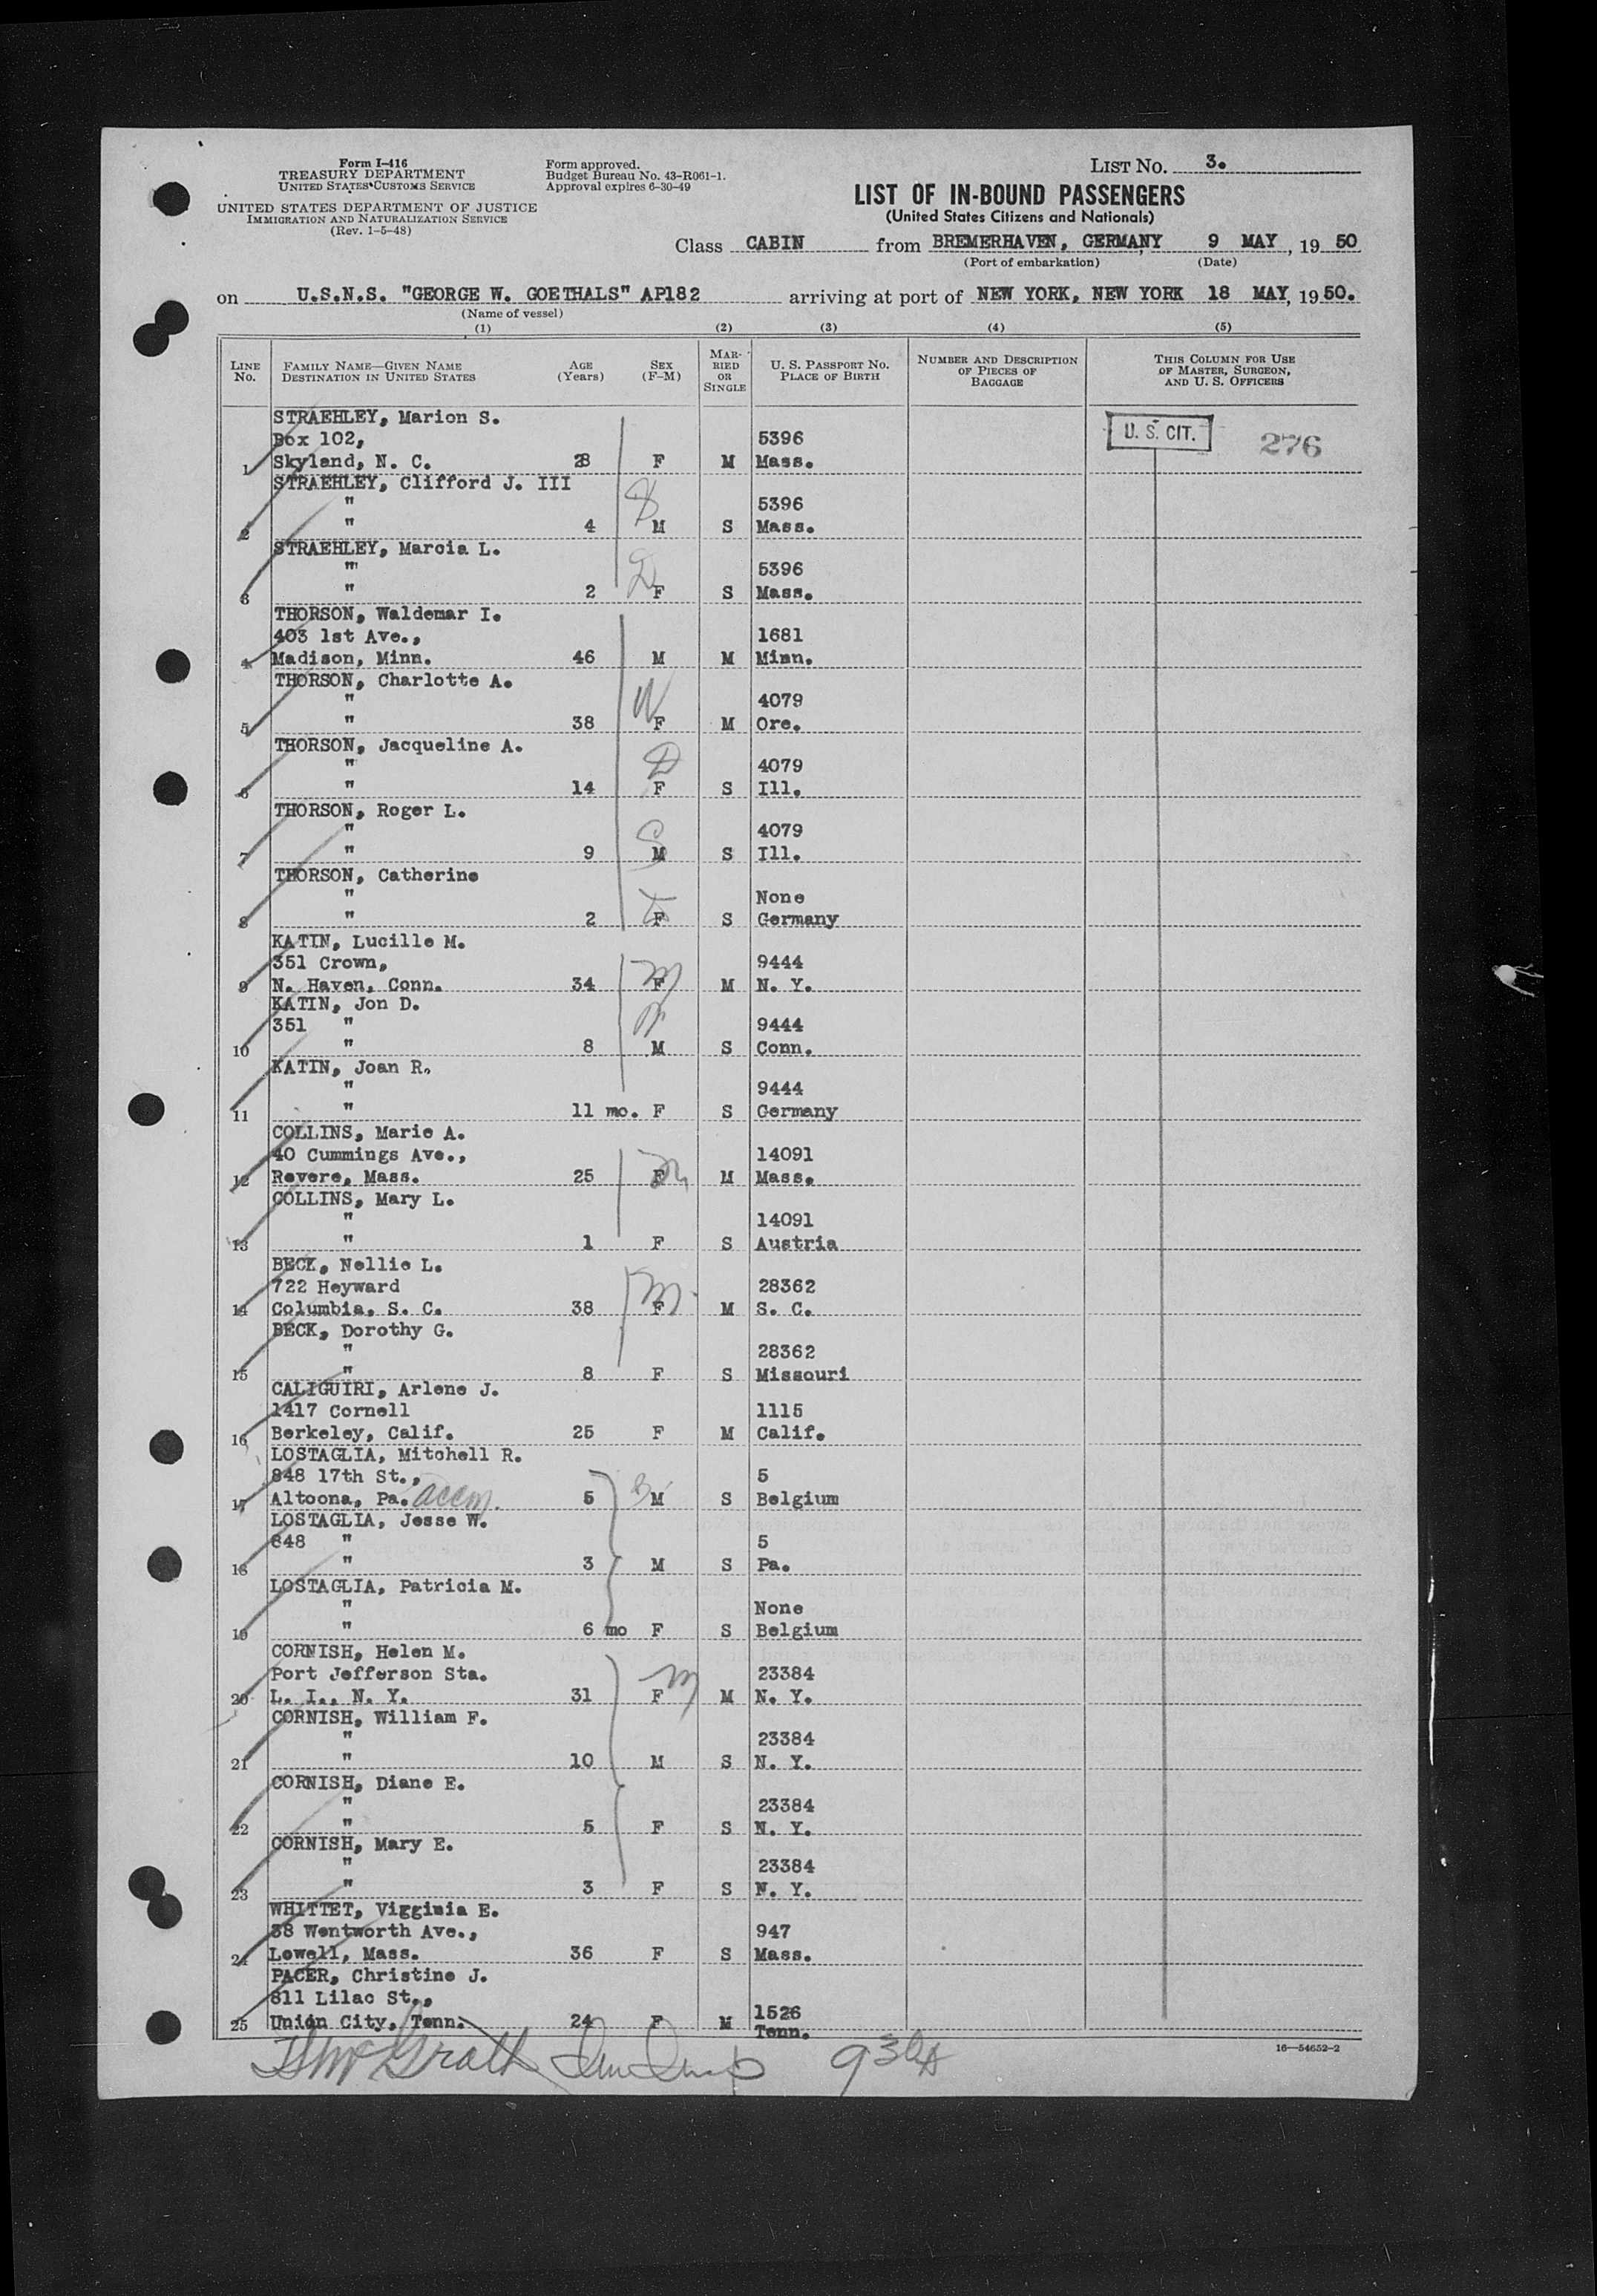 Form I-416
TREASURY DEPARTMENT
UNITED STATES CUSTOMS SERVICE
UNITED STATES DEPARTMENT OF JUSTICE
IMMIGRATION AND NATURALIZATION SERVICE
(Rev. 1-5-48)
Form approved.
Budget Bureau No. 43-R061-1.
Approval expires 6-30-49
LIST NO. 3.
LIST OF IN-BOUND PASSENGERS
(United States Citizens and Nationals)
Class CABIN from BREMERHAVEN, GERMANY, 9 MAY, 19 50
(Port of embarkation) (Date)
on U.S.N.S. "GEORGE W. GOETHALS" AP182 arriving at port of NEW YORK, NEW YORK 18 MAY, 19 50.
(Name of vessel)
(1) (2) (3) (4) (5)
LINE No. FAMILY NAME—GIVEN NAME DESTINATION IN UNITED STATES AGE (Years) SEX (F-M) MARRIED OR SINGLE U. S. PASSPORT NO. PLACE OF BIRTH NUMBER AND DESCRIPTION OF PIECES OF BAGGAGE THIS COLUMN FOR USE OF MASTER, SURGEON, AND U. S. OFFICERS
STRAEHLEY, Marion S.
Box 102, 5396 U. S. CIT. 276
1 Skyland, N. C. 28 F M Mass.
STRAEHLEY, Clifford J. III
" 5396
2 " 4 M S Mass.
STRAEHLEY, Marcia L.
" 5396
3 " 2 F S Mass.
THORSON, Waldemar I.
403 1st Ave., 1681
4 Madison, Minn. 46 M M Minn.
THORSON, Charlotte A.
" 4079
5 " 38 W F M Ore.
THORSON, Jacqueline A.
" 4079
6 " 14 D F S Ill.
THORSON, Roger L.
" 4079
7 " 9 S M S Ill.
THORSON, Catherine
" None
8 " 2 F S Germany
KATIN, Lucille M.
351 Crown, 9444
9 N. Haven, Conn. 34 F M N. Y.
KATIN, Jon D.
351 " 9444
10 " 8 M S Conn.
KATIN, Joan R.
" 9444
11 " 11 mo. F S Germany
COLLINS, Marie A.
40 Cummings Ave., 14091
12 Revere, Mass. 25 F M Mass.
COLLINS, Mary L.
" 14091
13 " 1 F S Austria
BECK, Nellie L.
722 Heyward 28362
14 Columbia, S. C. 38 F M S. C.
BECK, Dorothy G.
" 28362
15 " 8 F S Missouri
CALIGUIRI, Arlene J.
1417 Cornell 1115
16 Berkeley, Calif. 25 F M Calif.
LOSTAGLIA, Mitchell R.
848 17th St., 5
17 Altoona, Pa. accm. 5 M S Belgium
LOSTAGLIA, Jesse W.
848 " 5
18 " 3 M S Pa.
LOSTAGLIA, Patricia M.
" None
19 " 6 mo F S Belgium
CORNISH, Helen M.
Port Jefferson Sta. 23384
20 L. I., N. Y. 31 F M N. Y.
CORNISH, William F.
" 23384
21 " 10 M S N. Y.
CORNISH, Diane E.
" 23384
22 " 5 F S N. Y.
CORNISH, Mary E.
" 23384
23 " 3 F S N. Y.
WHITTET, Vigginia E.
38 Wentworth Ave., 947
24 Lowell, Mass. 36 F S Mass.
PACER, Christine J.
811 Lilac St., 1526
25 Union City, Tenn. 24 F M Tenn.
McGrath
16—54652-2